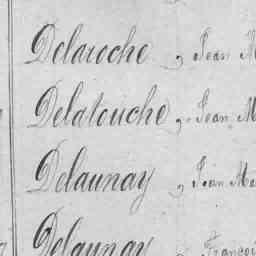 Delaroche, Jean M
Delatouche, Jean M
Delaunay, Jean Ma
Delaunay, Françoi